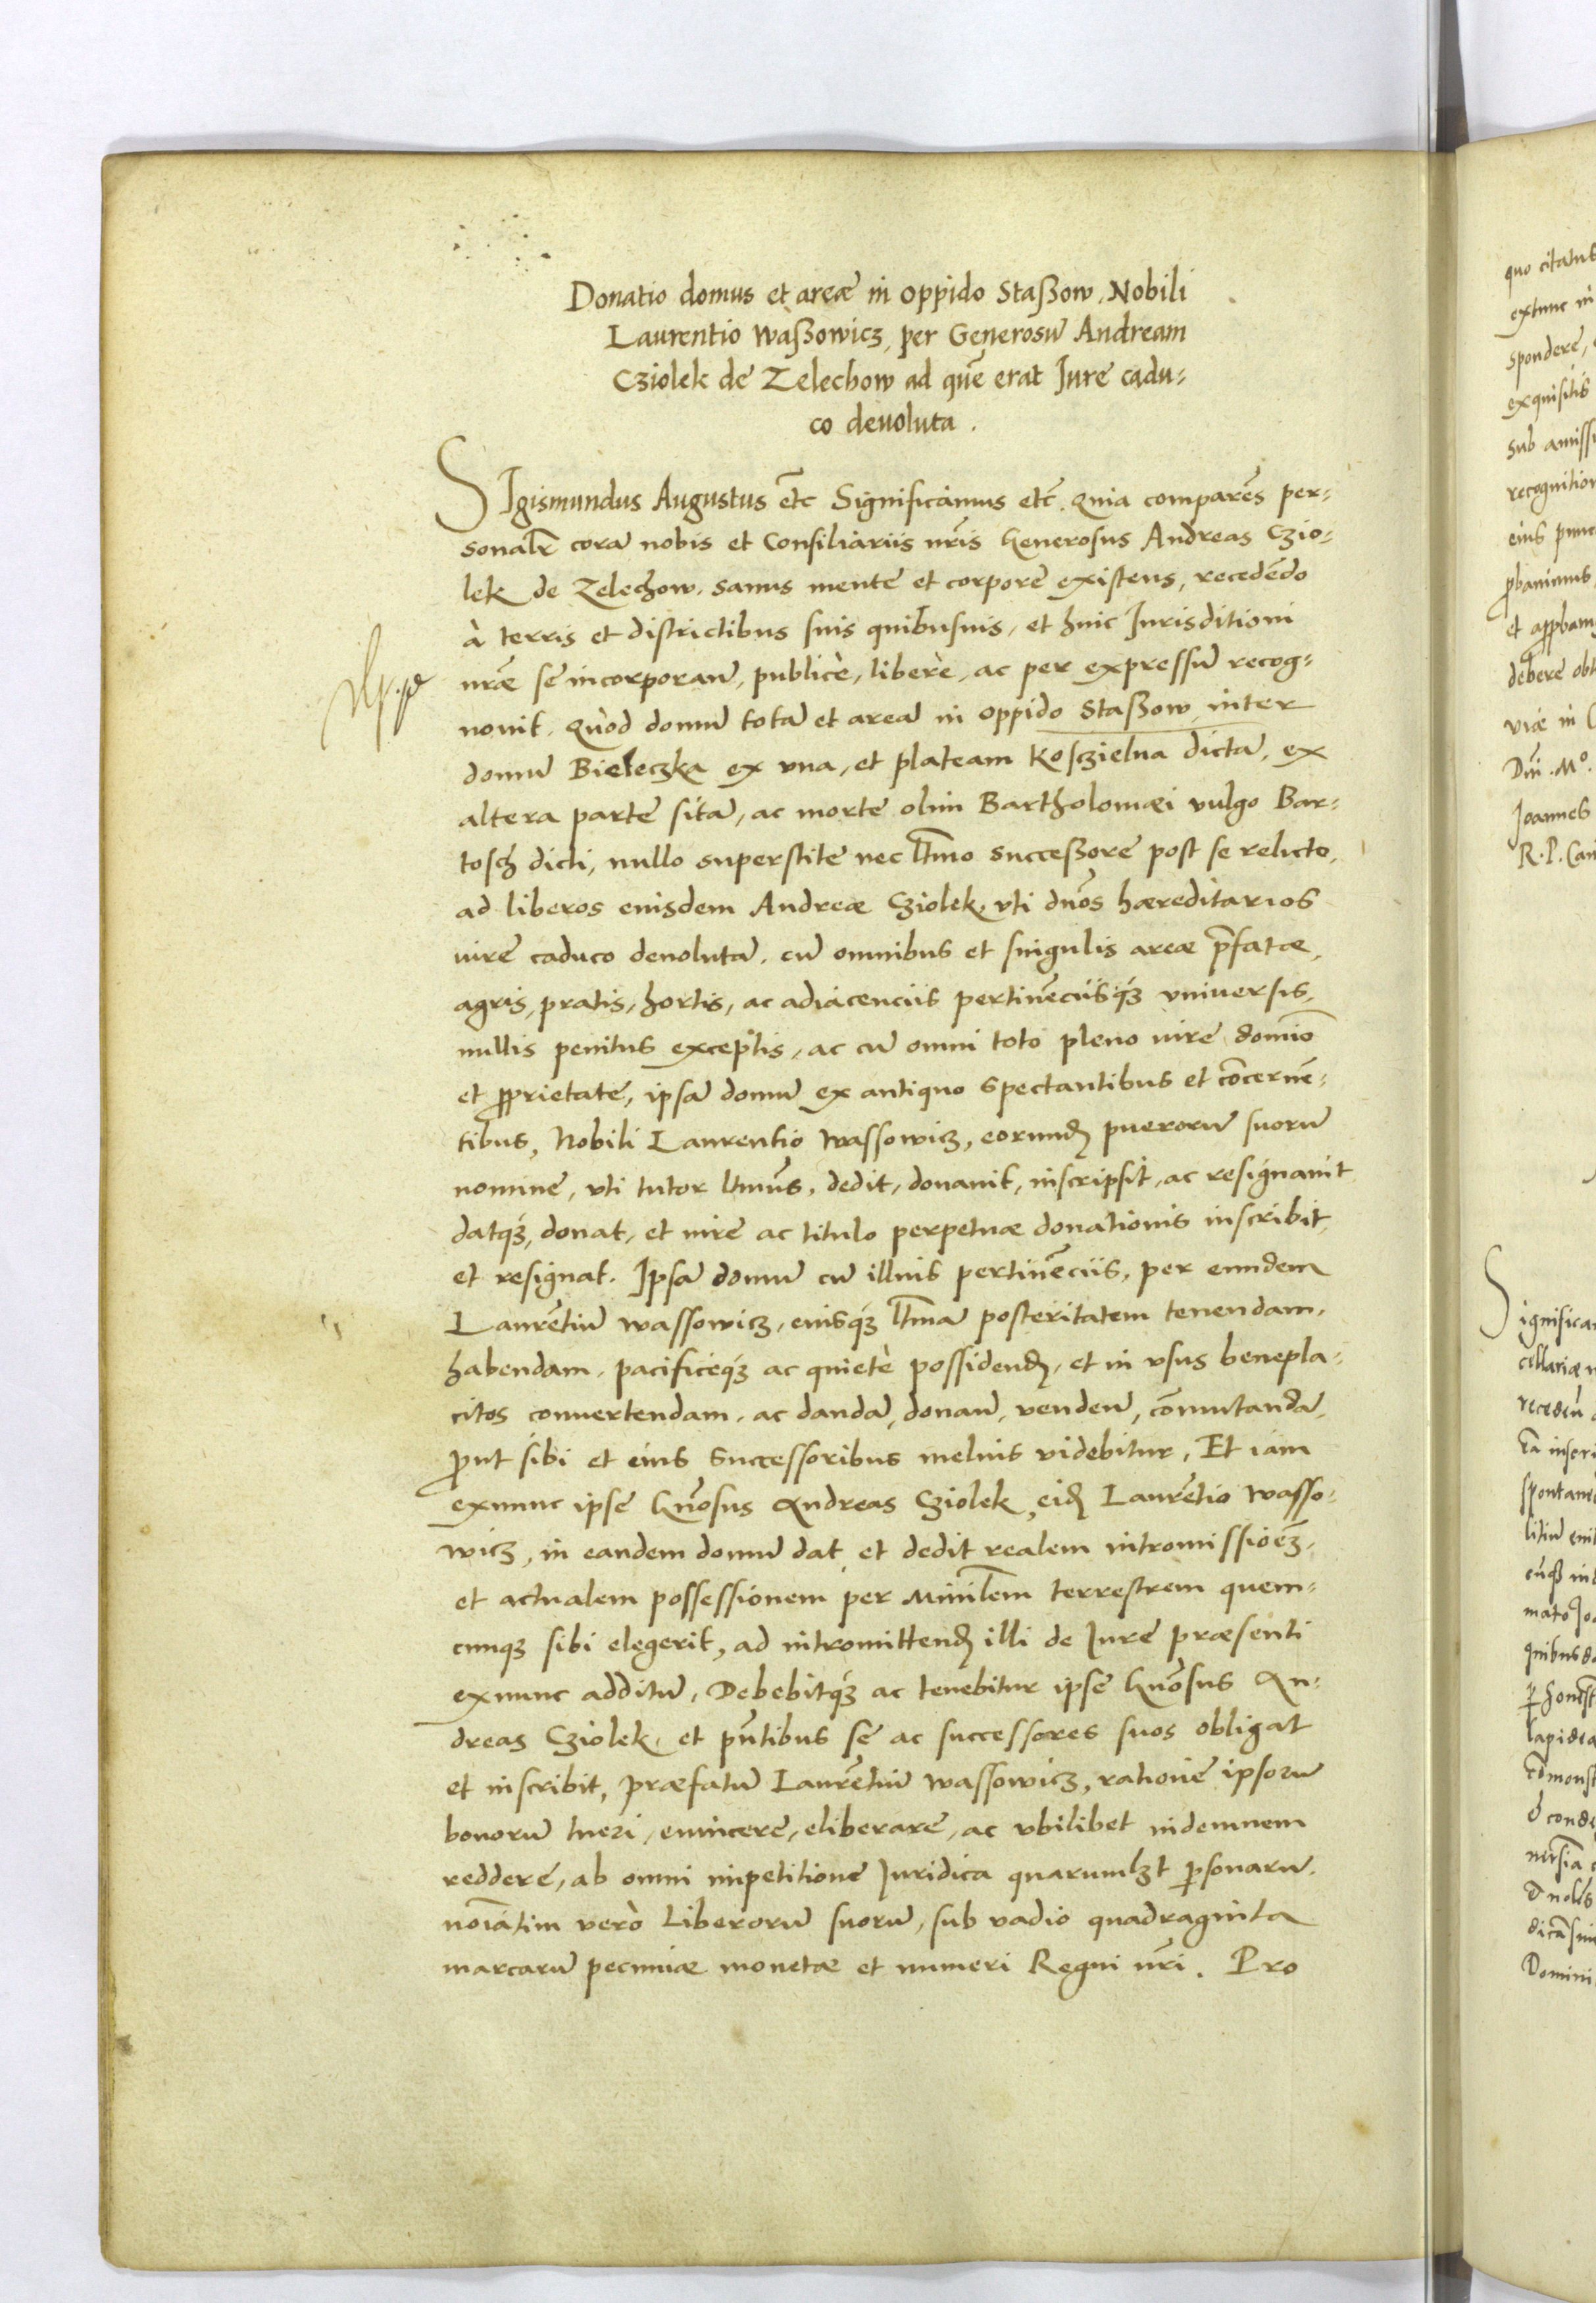 Donatio domus et areæ in oppido Staßow, Nobili
Laurentio Waßowicz, per Generosū Andream
Cziolek de Zelechow ad quē erat Jure cadu-
co deuoluta.
SIgismundus Augustus etc̄ Significamus etc̄. Quia comparēs per-
sonalr̄ corā nobis et Consiliariis nr̄is Generosus Andreas Czio-
lek de Zelechow. sanus mente et corpore existens, recedēdo
à terris et districtibus suis quibusuis, et huic Jurisditioni
nr̄æ se incorporan̄, publicè, liberè, ac per expressū recog-
nouit. Quòd domū totā et areā in oppido Staßow inter
domū Bieleczka ex vna, et plateam Kosczielna dictā, ex
altera parte sitā, ac morte olim Bartholomæi vulgo Bar-
tosch dicti, nullo superstite nec ltm̄o successore post se relicto,
ad liberos eiusdem Andreæ Cziolek, vti dn̄os hæreditarios
iure caduco deuolutā. cū omnibus et singulis areæ p̄fatæ,
agris, pratis, hortis, ac adiacenciis pertinēciisq́ꝫ vniuersis,
nullis penitus exceptis, ac cū omni toto pleno iure domīo
et ꝓprietate, ipsā domū ex antiquo spectantibus et cōcernē-
tibus, Nobili Laurentio Wassowicz, eorundꝫ puerorū suorū
nomine, vti tutor ltm̄us, dedit, donauit, inscripsit, ac resignauit
datq́ꝫ, donat, et iure ac titulo perpetuæ donationis inscribit,
et resignat. Ipsā domū cū illius pertinēciis, per eundem
Laurētiū Wassowicz, eiusq́ꝫ ltm̄ā posteritatem tenendam,
habendam, pacificeq́ꝫ ac quietè possidendꝫ, et in vsus benepla-
citos conuertendam, ac dandā, donan̄, venden̄, cōmutandā,
ꝓut sibi et eius successoribus melius videbitur. Et iam
exnunc ipse Gn̄osus Andreas Cziolek, eidꝫ Laurētio Wasso-
wicz, in eandem domū dat et dedit realem intromissioēꝫ,
et actualem possessionem per Minilēm terrestrem quem-
cunqꝫ sibi elegerit, ad intromittendꝫ illi de Jure præsenti
exnunc additū, Debebitq́ꝫ ac tenebitur ipse Gn̄osus An-
dreas Cziolek, et pn̄tibus se ac successores suos obligat
et inscribit, præfatū Laurētiū Wassowicz, ratione ipsorū
bonorū tueri, euincere, eliberare, ac vbilibet indemnem
reddere, ab omni impetitione Juridica quarumlꝫt ꝑsonarū.
noīatim verò Liberorū suorū, sub vadio quadraginta
marcarū pecuniæ monetæ et numeri Regni nr̄i. Pro
quo citatus
extunc in
spondere,
exquisitis
sub amiss
recognition
eius
et
debere
viæ in
Joannes
R. P. Can
Significa
cellariæ
mato
quibus
lapidea
Domini